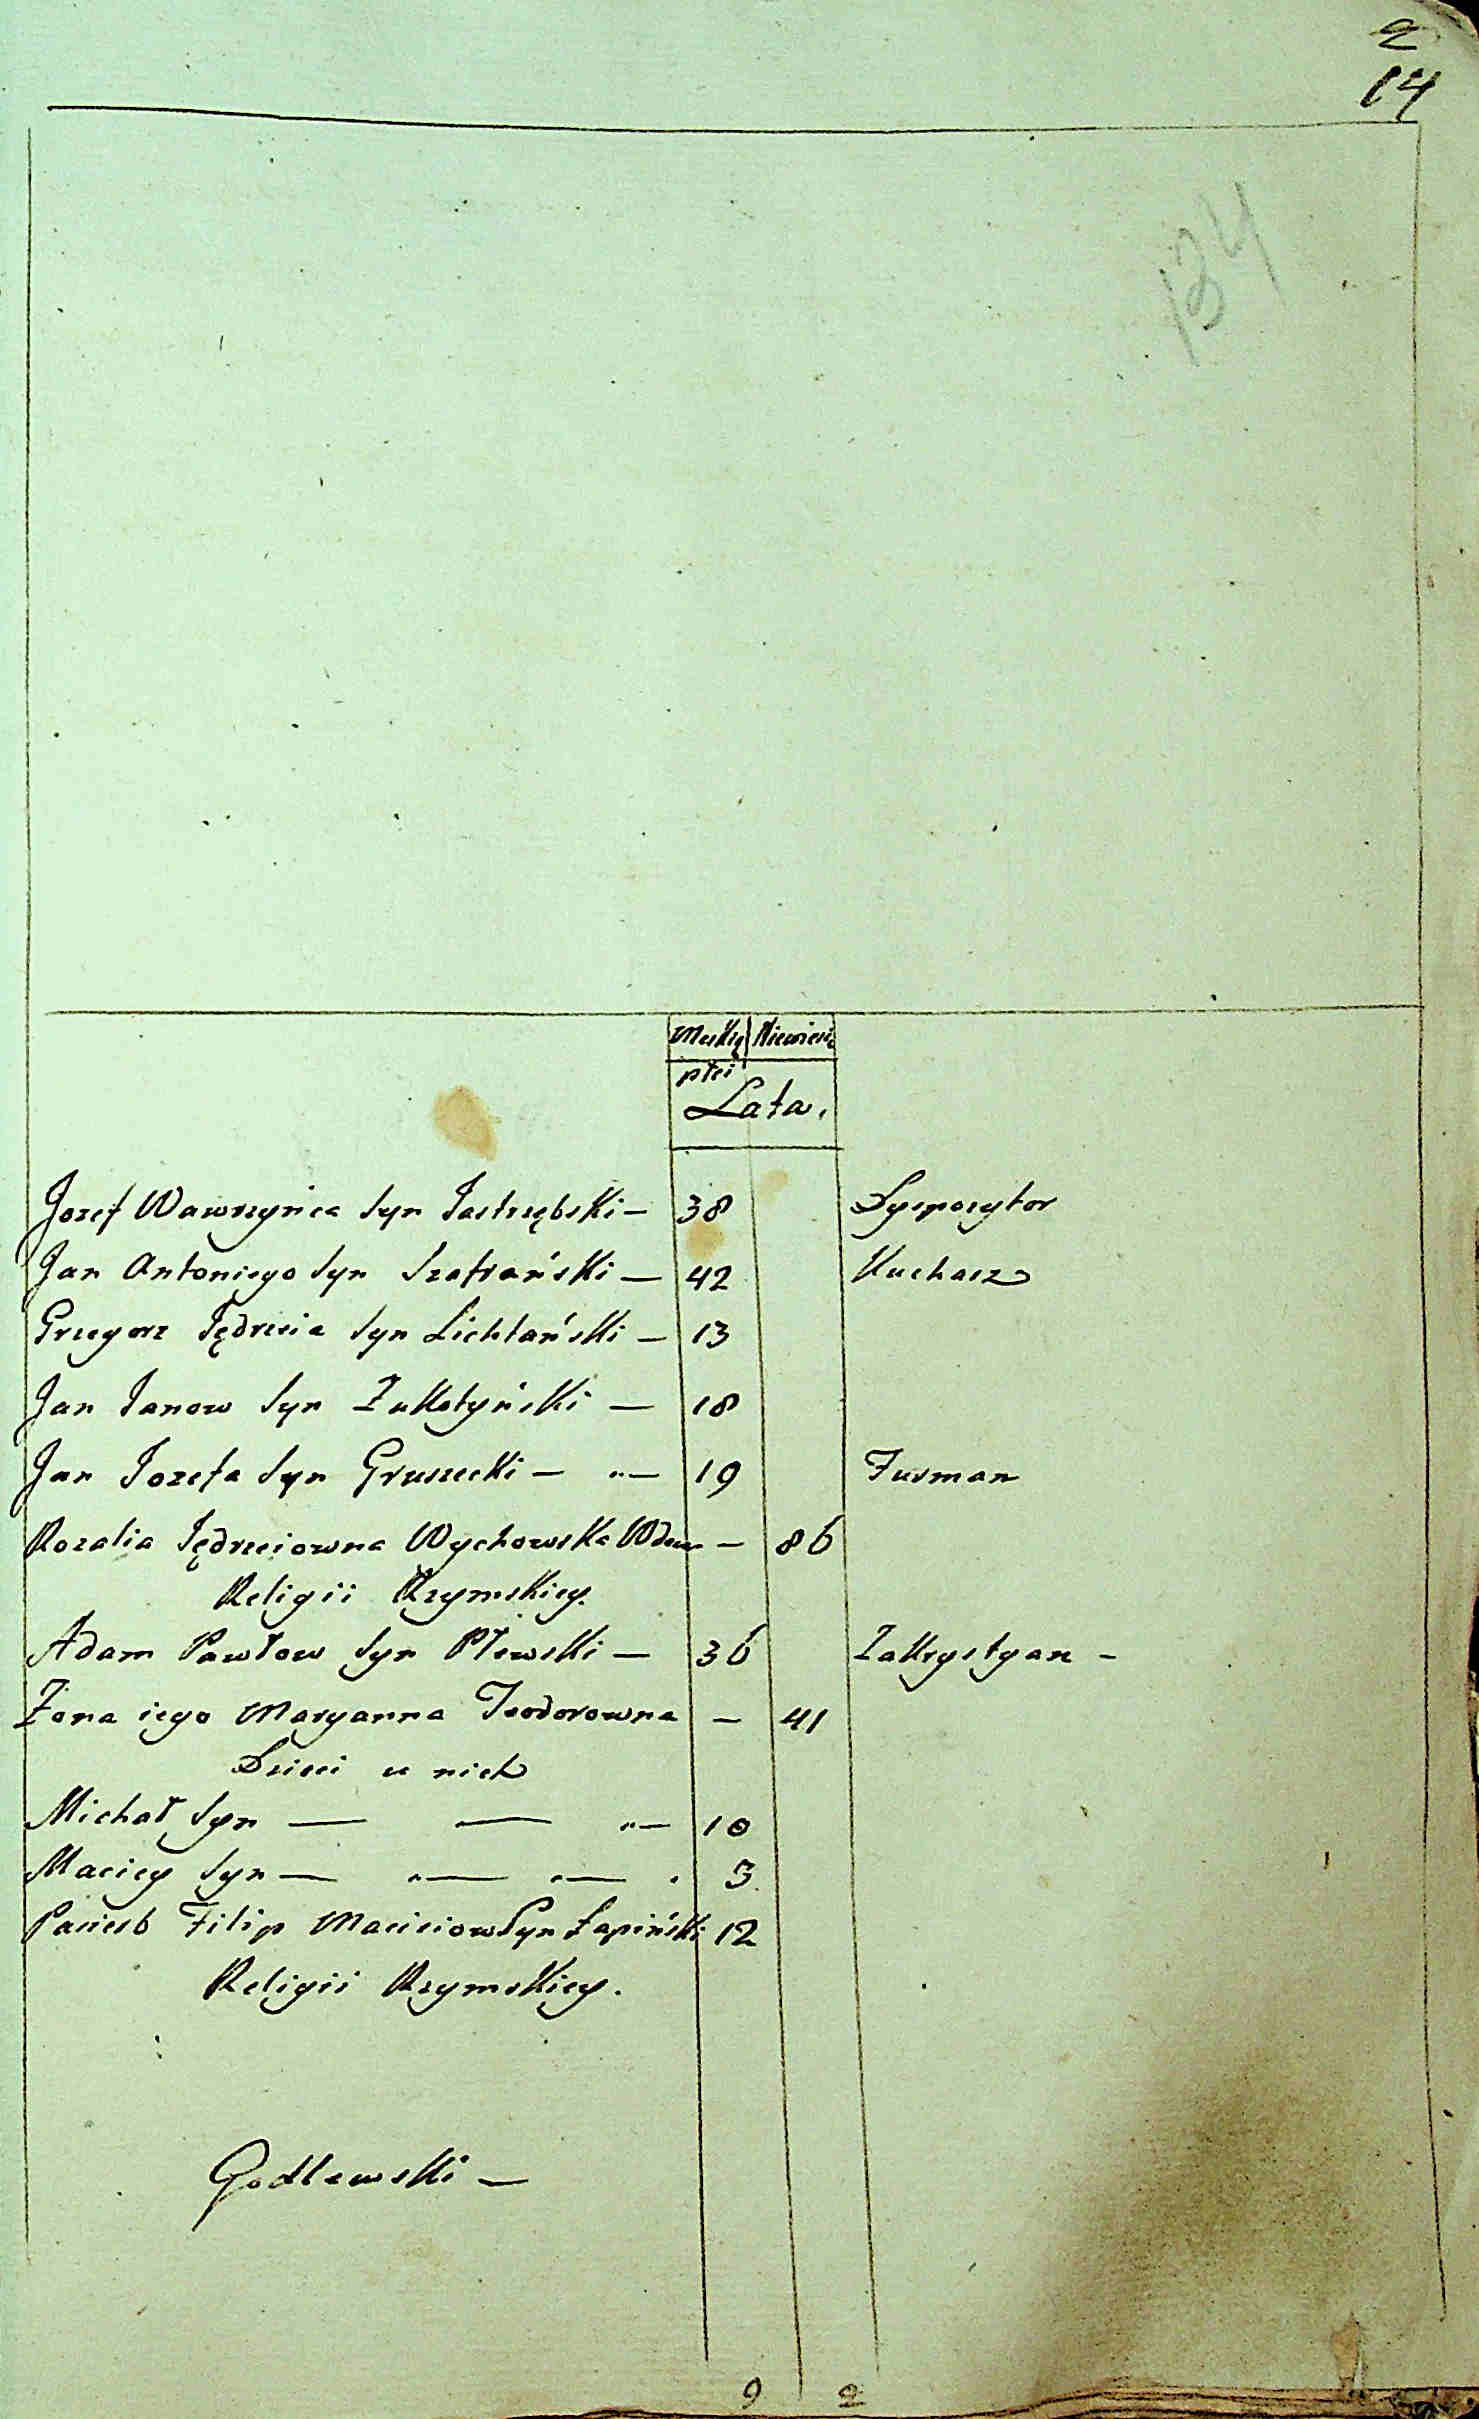 2
14
134
Męską Niewieśc.
płci
Lata.
Jozef Wawrzyńca Syn Jastrzębski — 38 Dyspozytor
Jan Antoniego Syn Szafrański — 42 Kucharz
Grzegorz Jędrzeia Syn Lichtański — 13
Jan Janow Syn Żukotyński — 18
Jan Jozefa Syn Gruszecki — „— 19 Furman
Rozalia Jędrzeiowna Wychowska Wdow — 86
Religii Rzymskiey.
Adam Pawłow Syn Plewski — 36 Zakrystyan —
Żona iego Maryanna Teodorowna — 41
Dzieci u nich
Michał Syn — — „— 10
Maciey Syn — „— „— . 3
Pasierb Filip Macieiow Syn Łapiński 12
Religii Rzymskiey.
Godlewski —
9 2